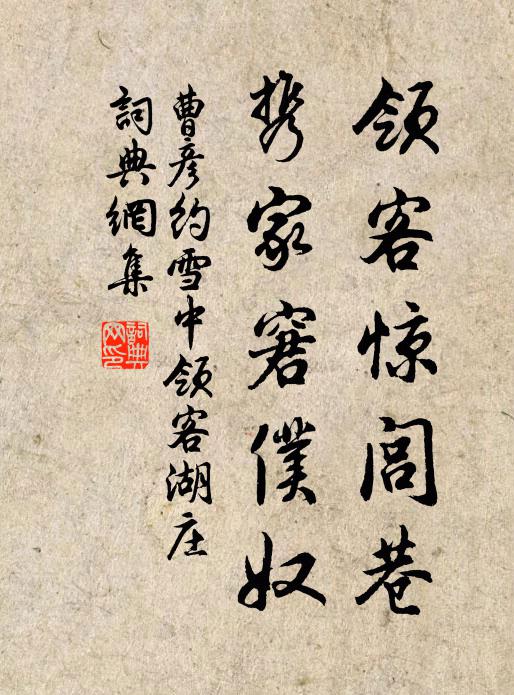 领客惊闾巷
携家窘僕奴
曹彦约雪中领客湖庄
詞典網集
詞典网印